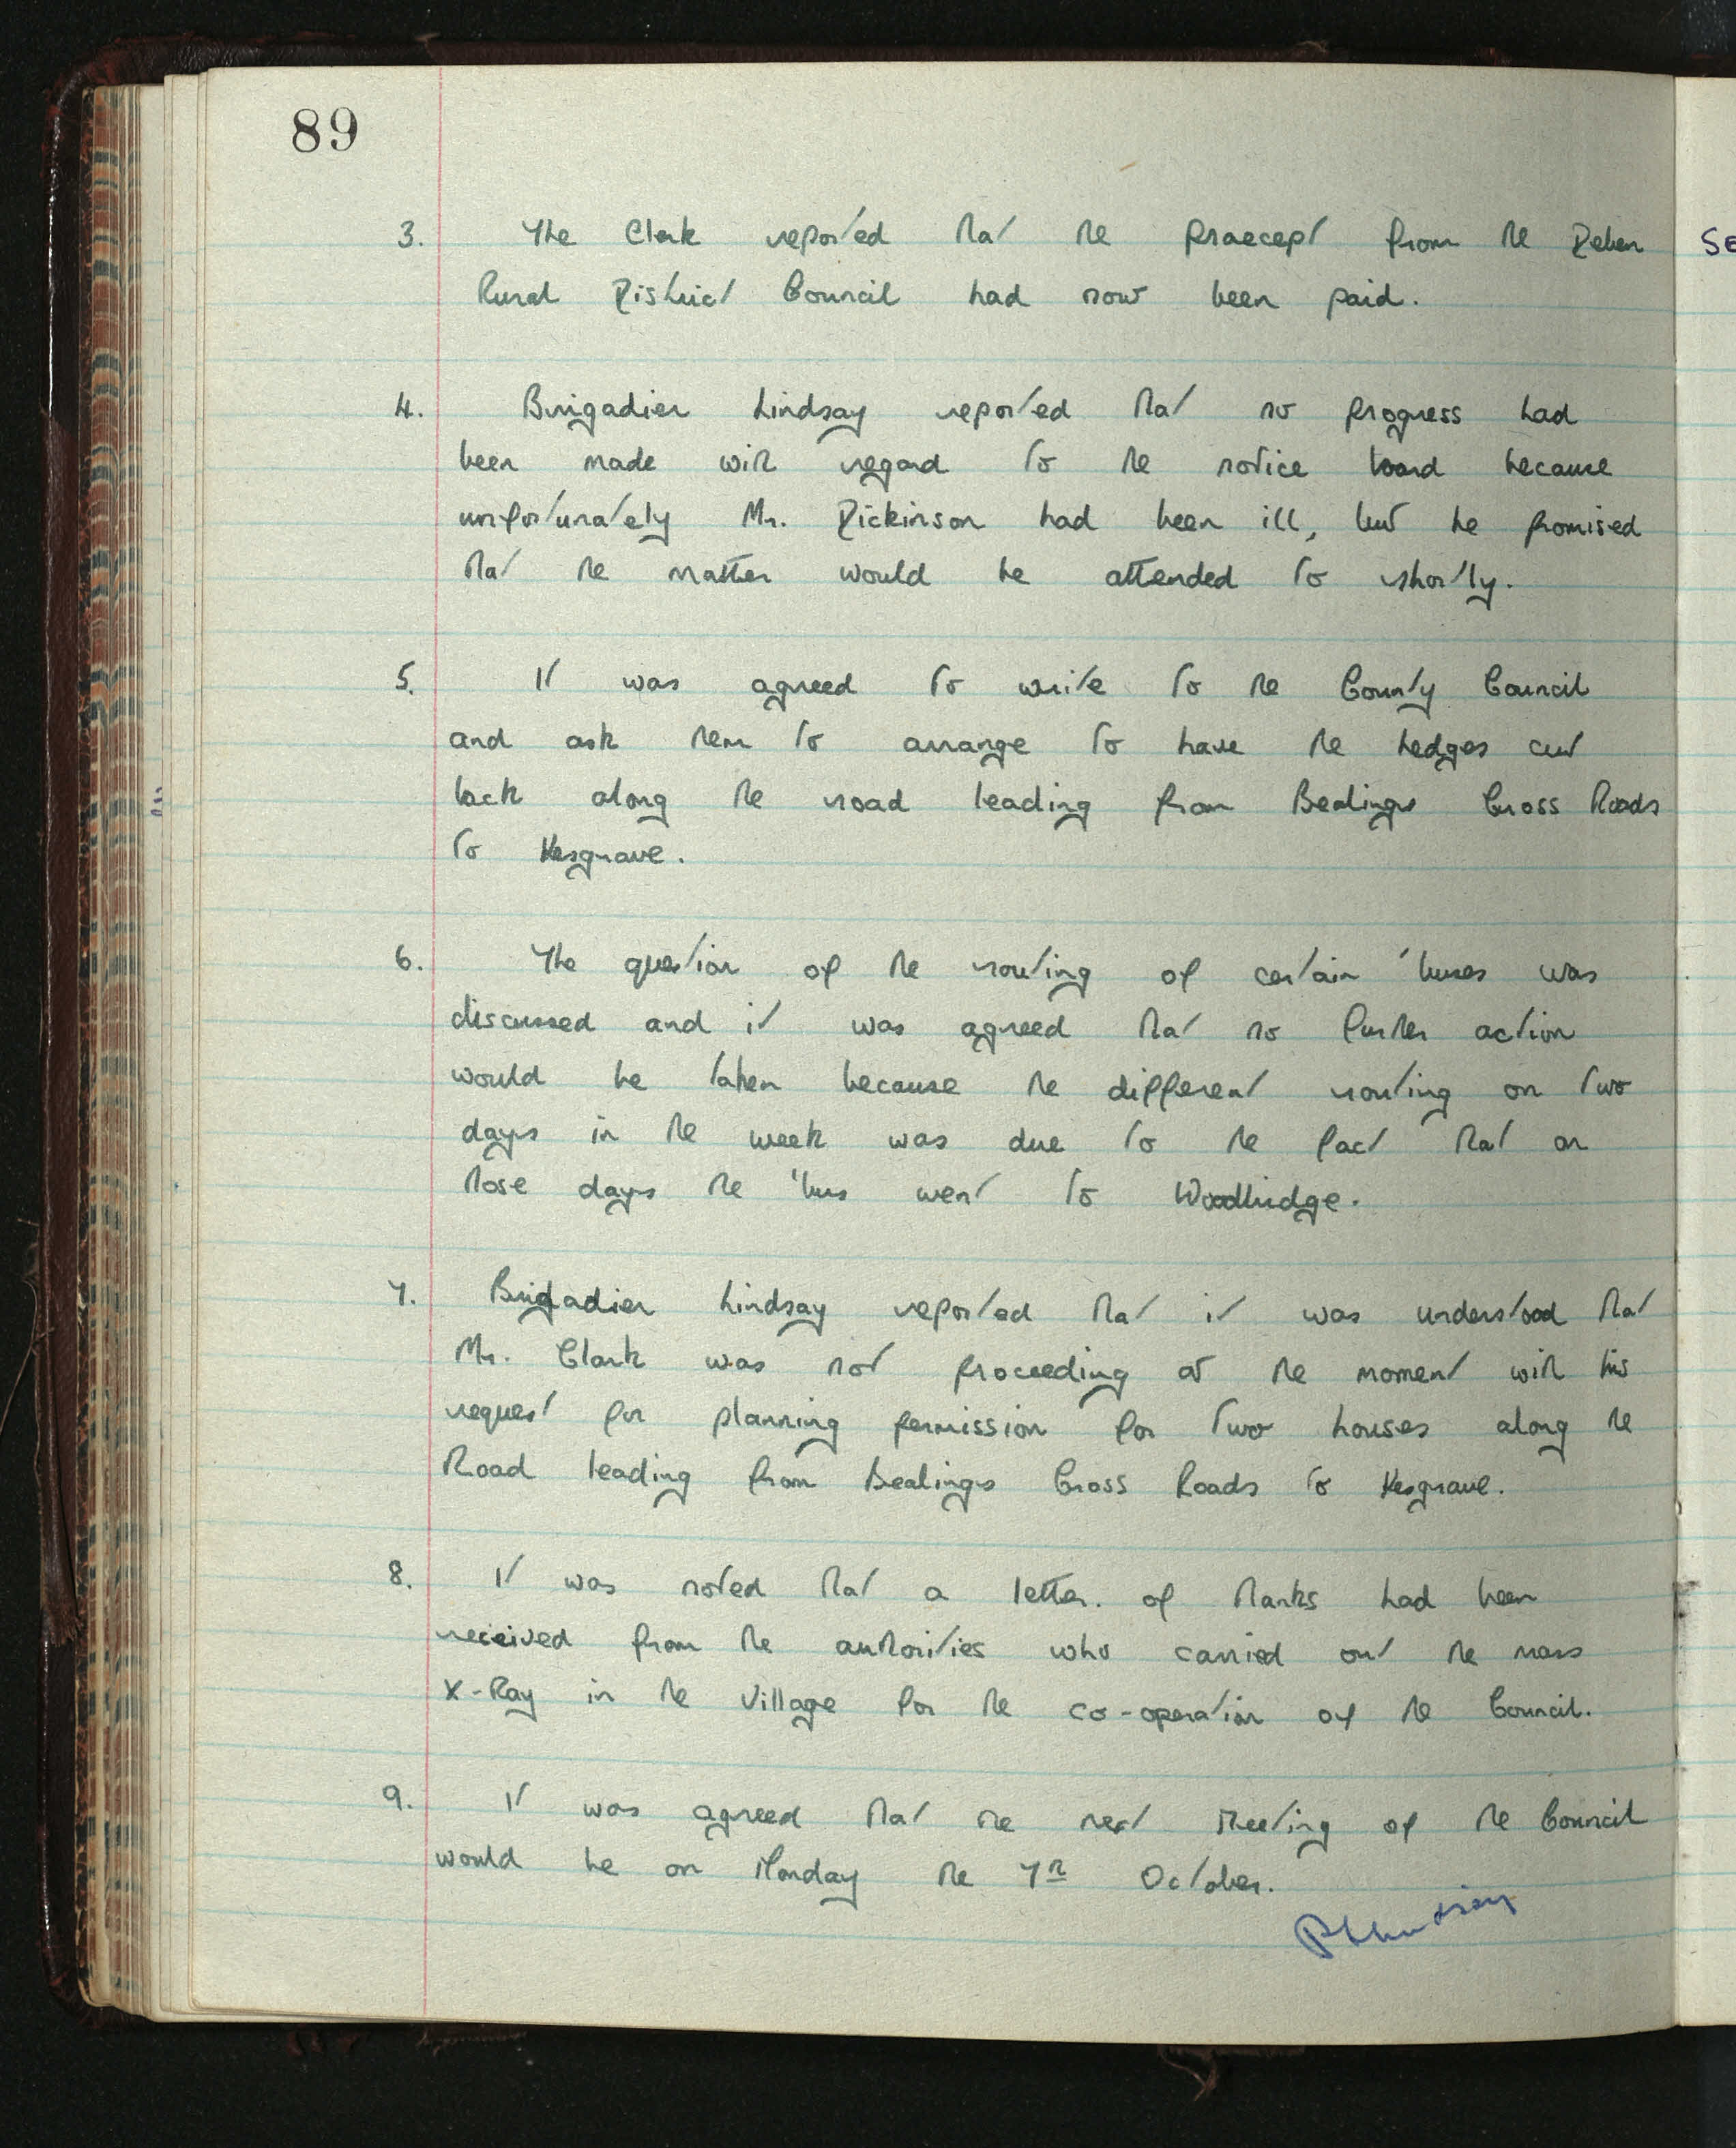 89
3. The Clerk reported that the praecept from the Deben
Rural District Council had now been paid.
4. Brigadier Lindsay reported that no progress had
been made with regard to the notice board because
unfortunately Mr. Dickinson had been ill, but he promised
that the matter would be attended to shortly.
5. It was agreed to write to the County Council
and ask them to arrange to have the hedges cut
back along the road leading from Bealings Cross Roads
to Kesgrave.
6. The question of the routing of certain 'buses was
discussed and it was agreed that no further action
would be taken because the different routing on two
days in the week was due to the fact that on
those days the 'bus went to Woodbridge.
7. Brigadier Lindsay reported that it was understood that
Mr. Clark was not proceeding at the moment with his
request for planning permission for two houses along the
Road leading from Bealings Cross Roads to Kesgrave.
8. It was noted that a letter of thanks had been
received from the authorities who carried out the mass
X-Ray in the Village for the co-operation of the Council.
9. It was agreed that the next Meeting of the Council
would be on Monday the 7th October.
SE